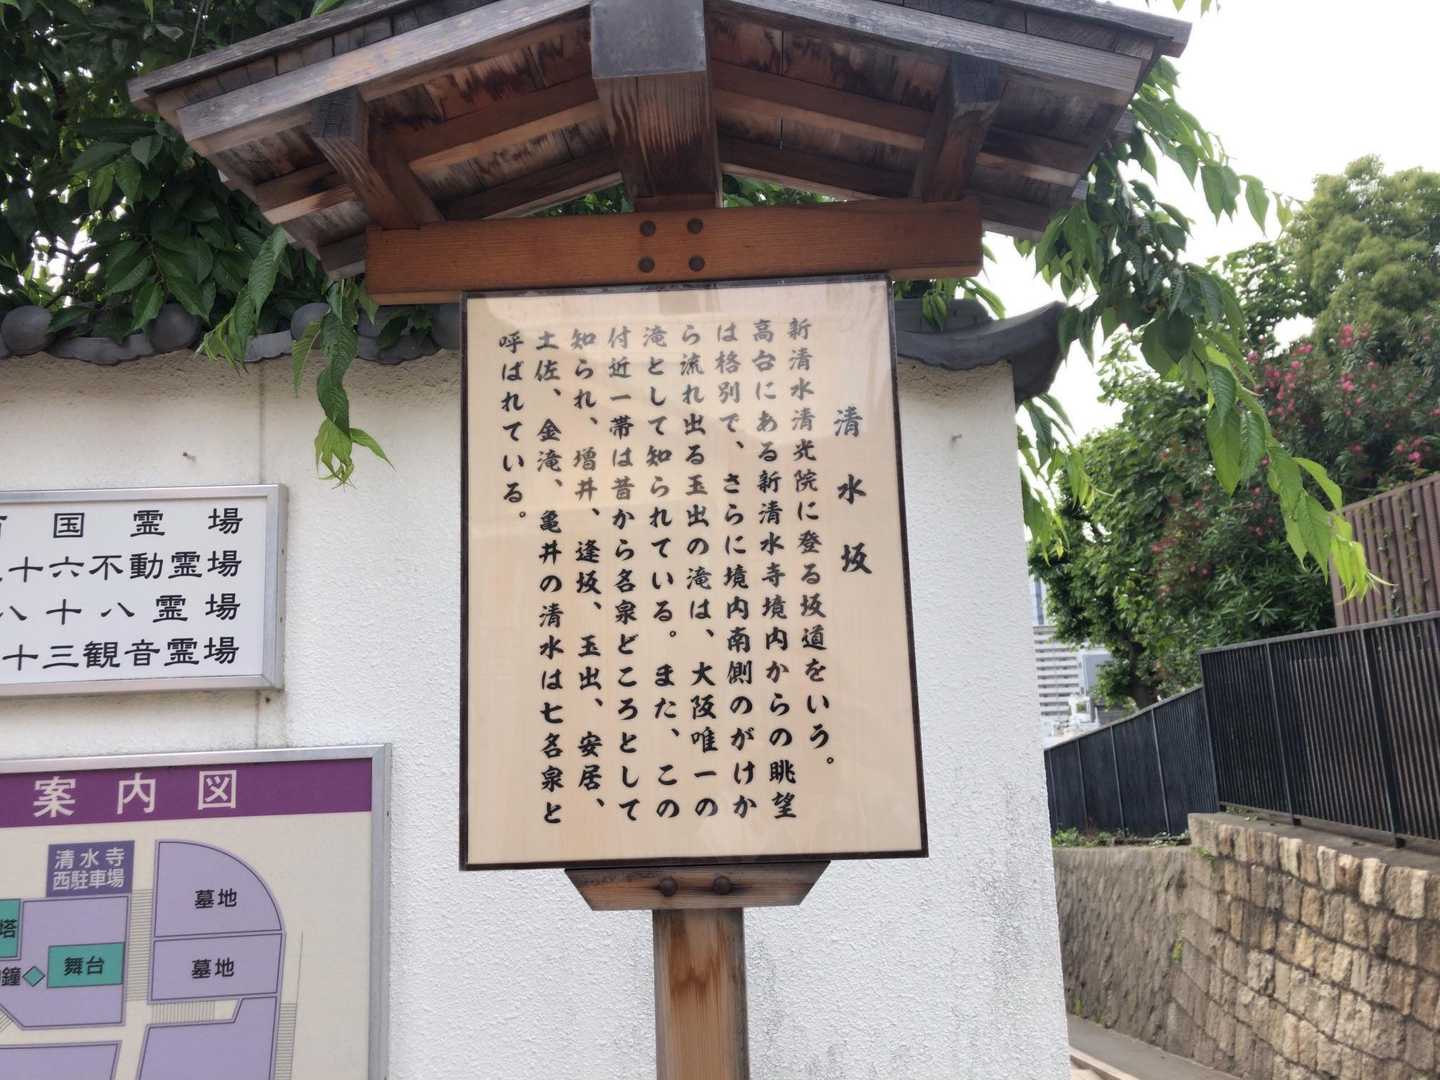 清水坂
新清水清光院に登る坂道をいう。
高台にある新清水寺境内からの眺望
は格別で、さらに境内南側のがけか
ら流れ出る玉出の滝は、大阪唯一の
滝として知られている。また、この
付近一帯は昔から名泉どころとして
知られ、増井、逢坂、玉出、安居、
土佐、金滝、亀井の清水は七名泉と
呼ばれている。
国霊場
十六不動霊場
八十八霊場
十三観音霊場
案内図
清水寺
西駐車場
墓地
塔
舞台
鐘
墓地